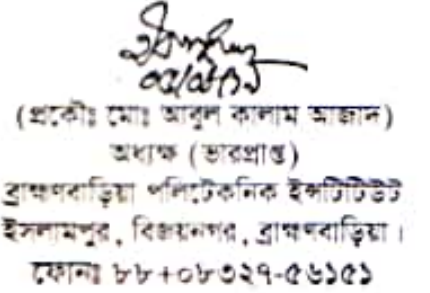 (প্রকৌঃ মোঃ আবুল কালাম আজাদ)
অধ্যক্ষ (ভারপ্রাপ্ত)
ব্রাহ্মণবাড়িয়া পলিটেকনিক ইন্সটিটিউট
ইসলামপুর, বিজয়নগর, ব্রাহ্মণবাড়িয়া।
ফোনঃ ৮৮+০৮৩২৭-৫৬১৫১